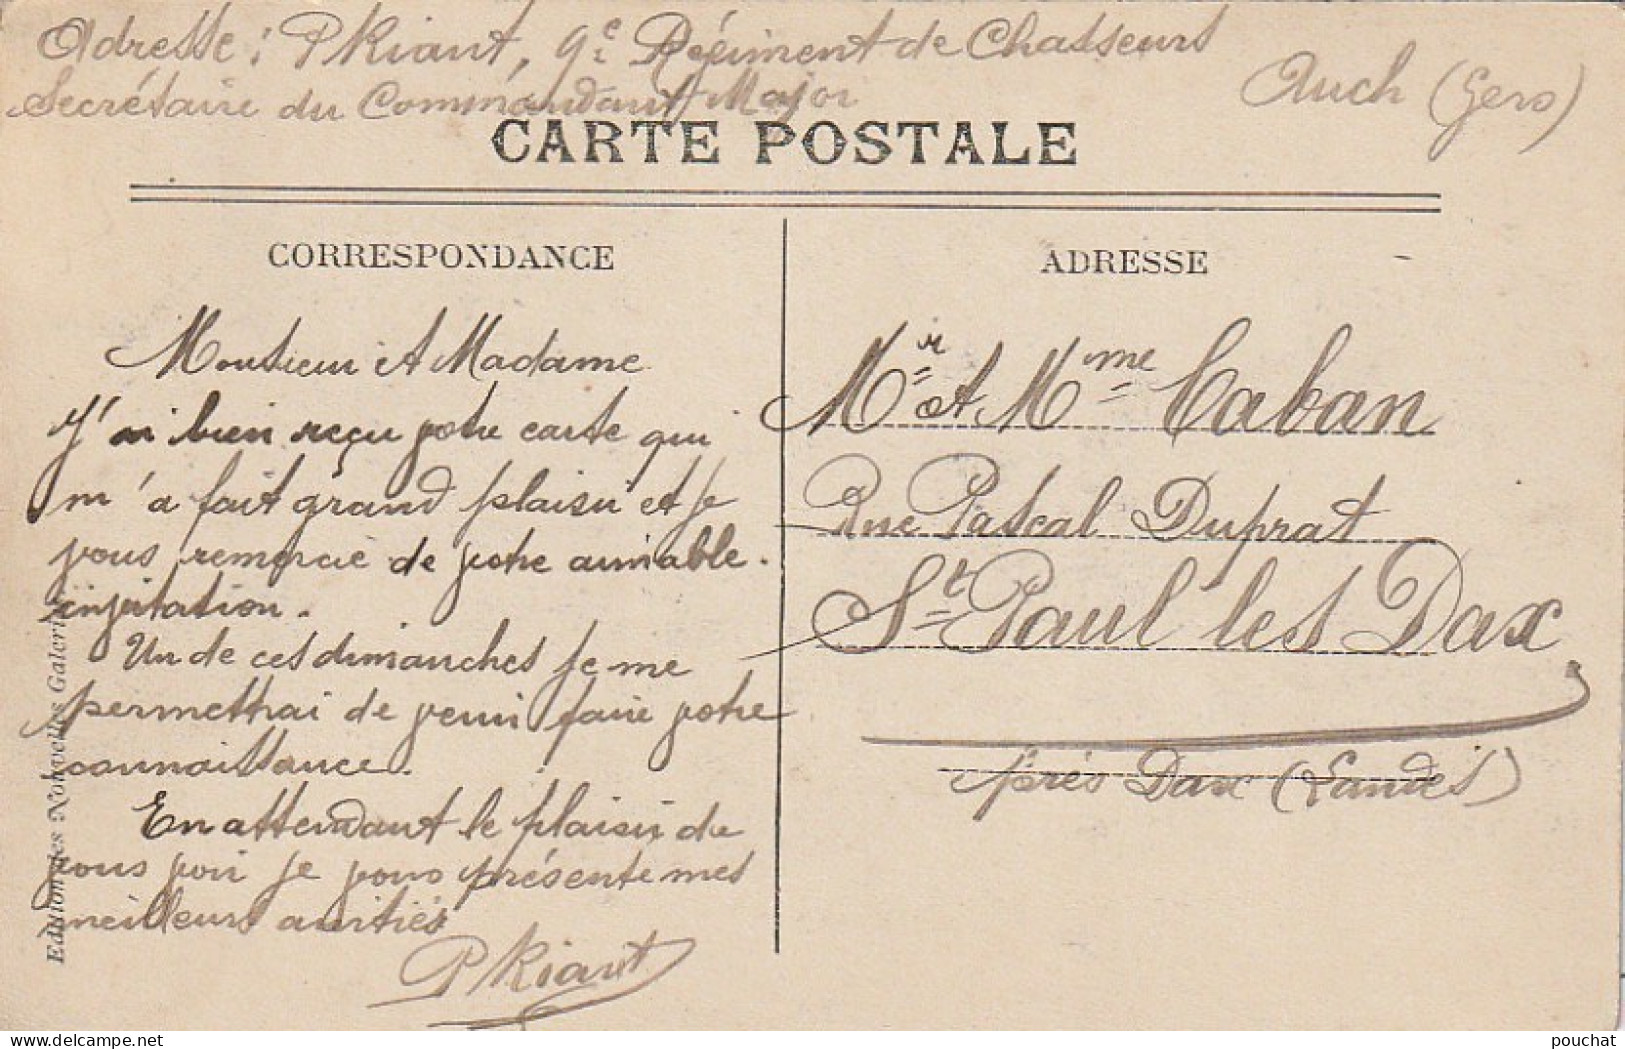 Adresse : P Kiant, 9e Régiment de Chasseurs
Secrétaire du Commandant Major
Auch (Gers)
CARTE POSTALE
CORRESPONDANCE
Monsieur et Madame
J'ai bien reçu votre carte qui
m'a fait grand plaisir et je
vous remercie de votre aimable
invitation.
Un de ces dimanches je me
permettrai de venir faire votre
connaissance.
En attendant le plaisir de
vous voir je vous présente mes
meilleurs amitiés
P Kiant
ADRESSE
Mr et Mme Caban
Rue Pascal Duprat
St Paul les Dax
près Dax (Landes)
Edition des Nouvelles Galeries
pouchat